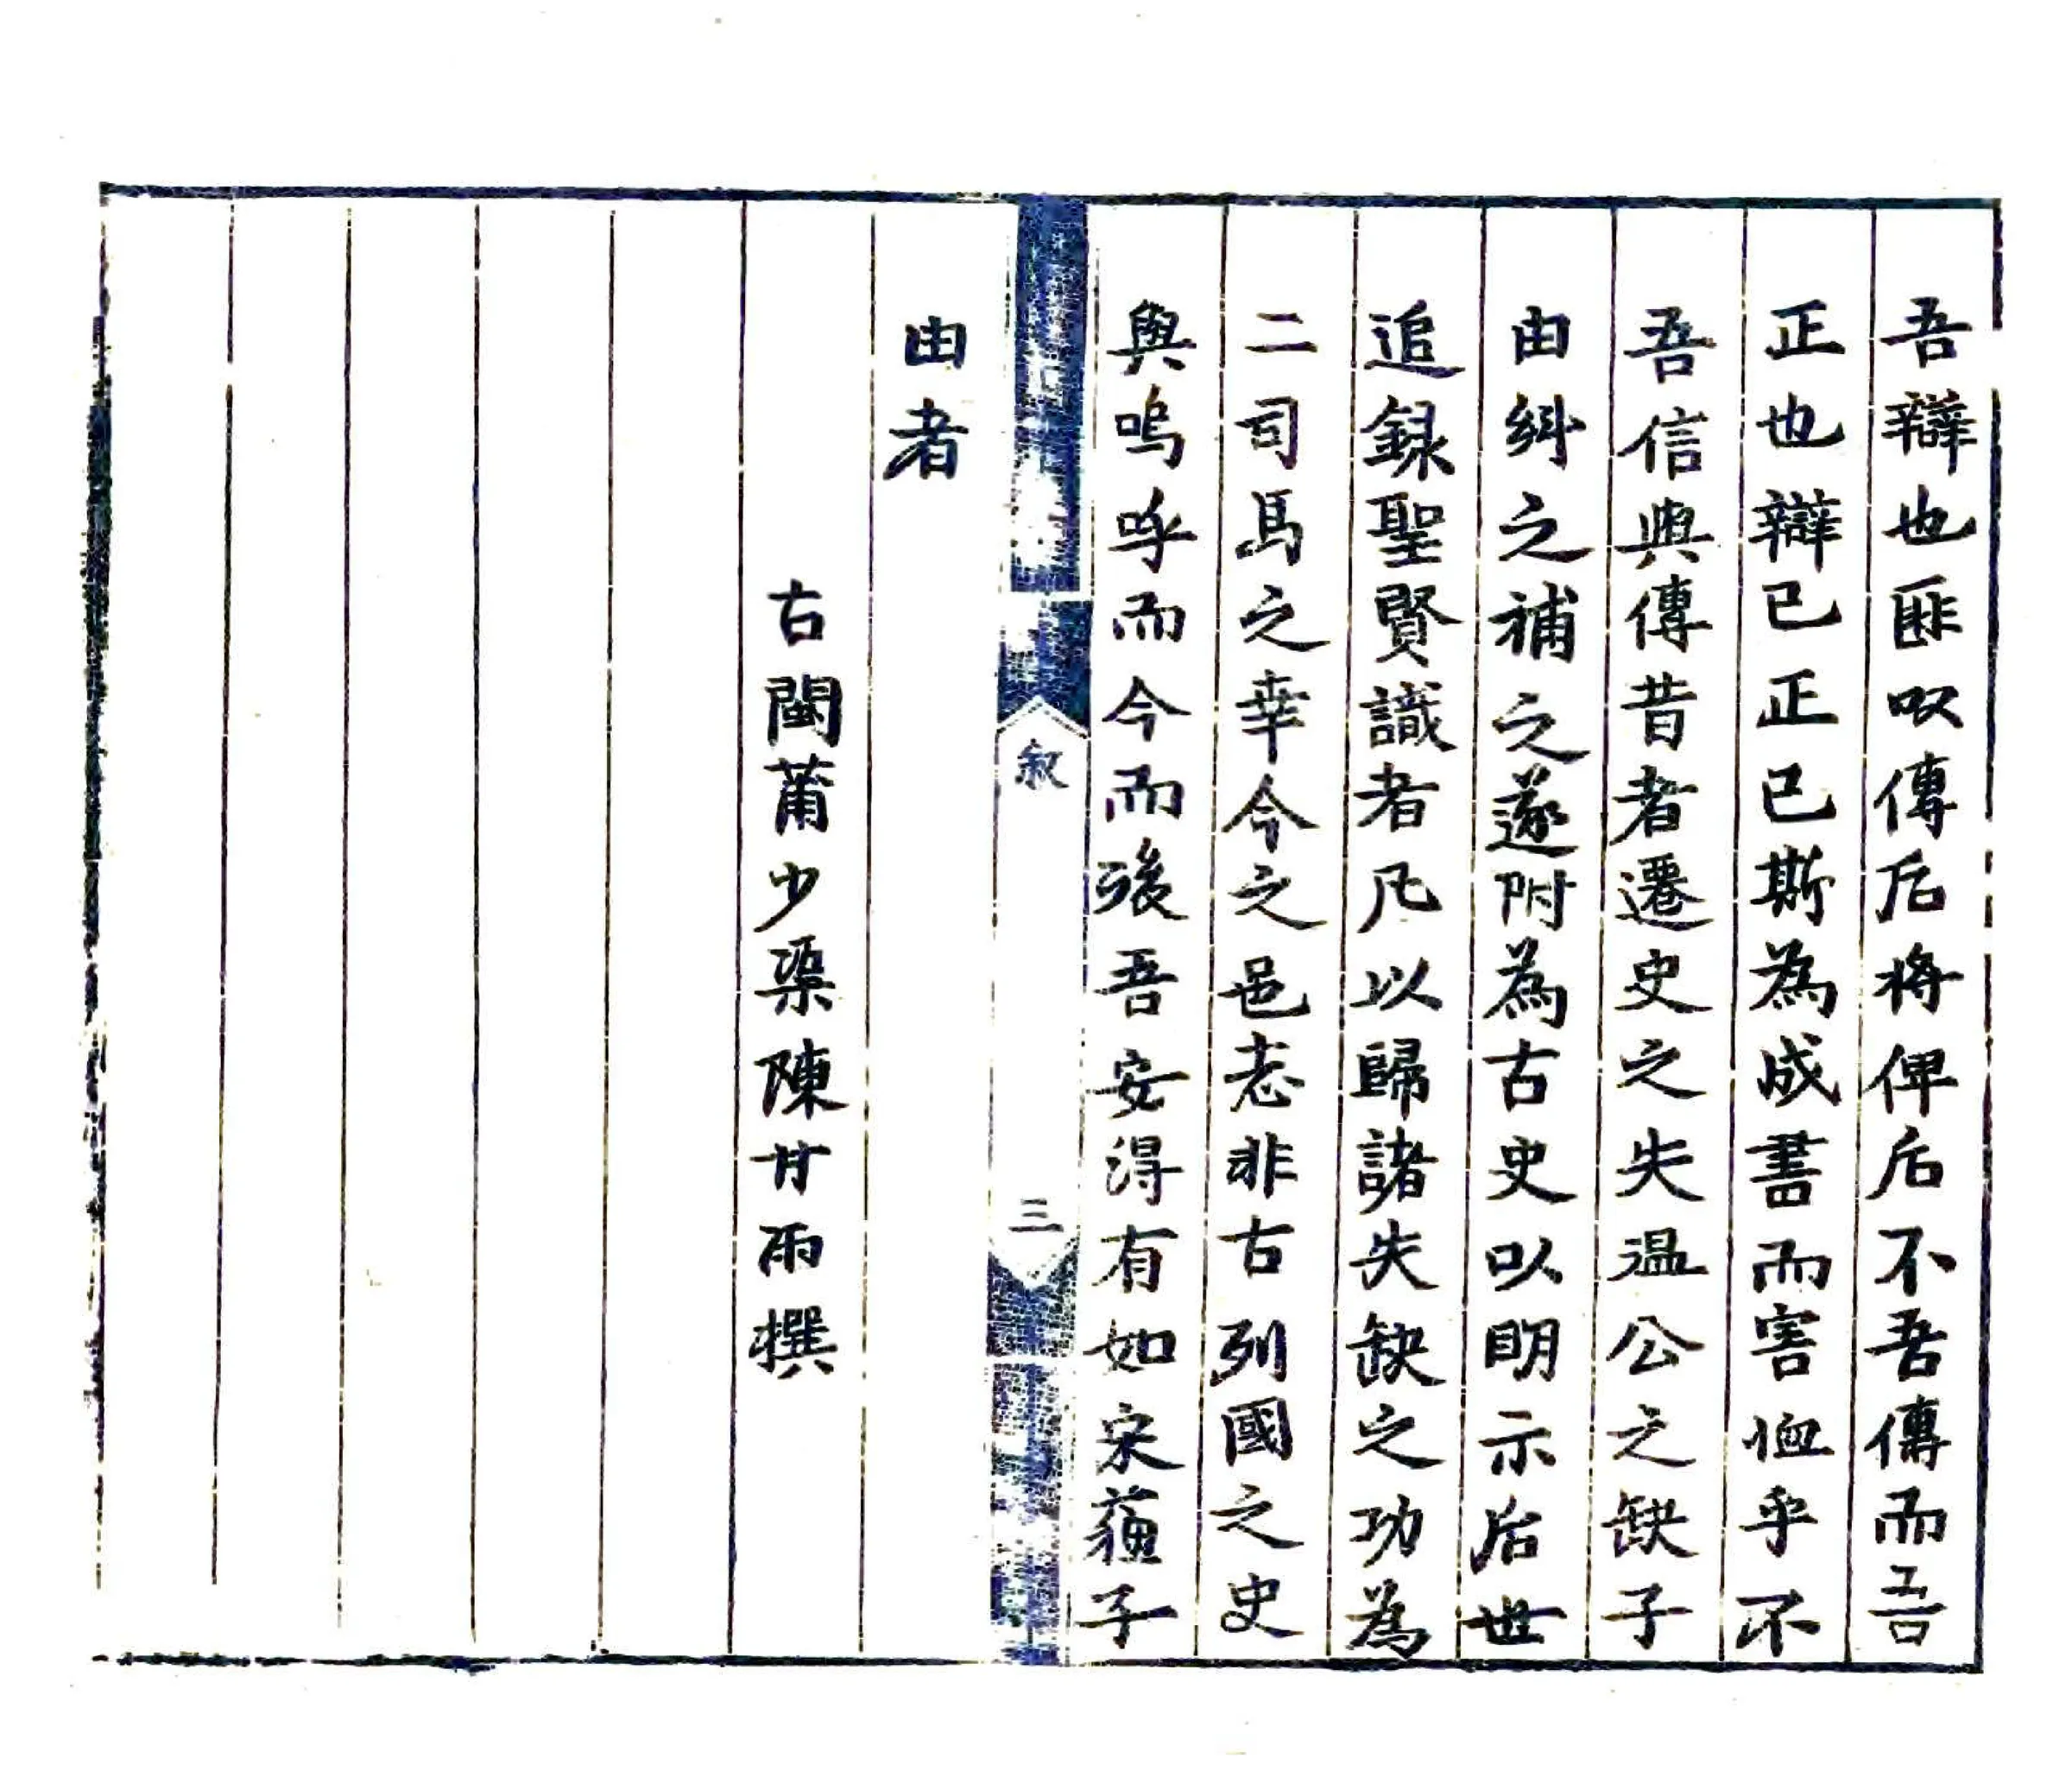 吾辯也匪㕥傳后將俾后不吾傳而吾
正也辯已正已斯為成書而害恤乎不
吾信與傳昔者遷史之失温公之缺子
由糾之補之遂附為古史㕥明示后世
追録聖賢識者凡以歸諸失缺之功為
二司馬之幸今之邑志非古列國之史
與嗚呼而今而後吾安得有如宋蘓子
由者
古閩莆少渠陳甘雨撰
叙
三